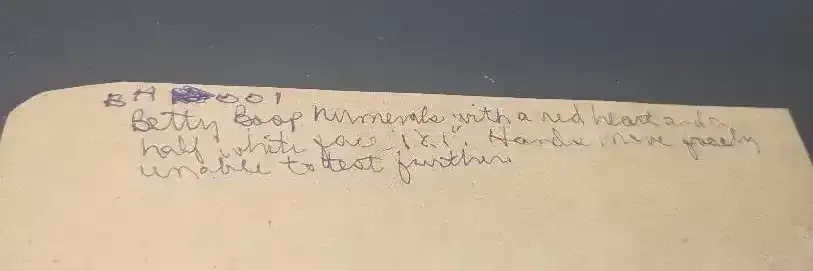 BH 001
Betty Boop numerals with a red heart and a
half white face 1 x 1". Hands move freely
unable to test further.